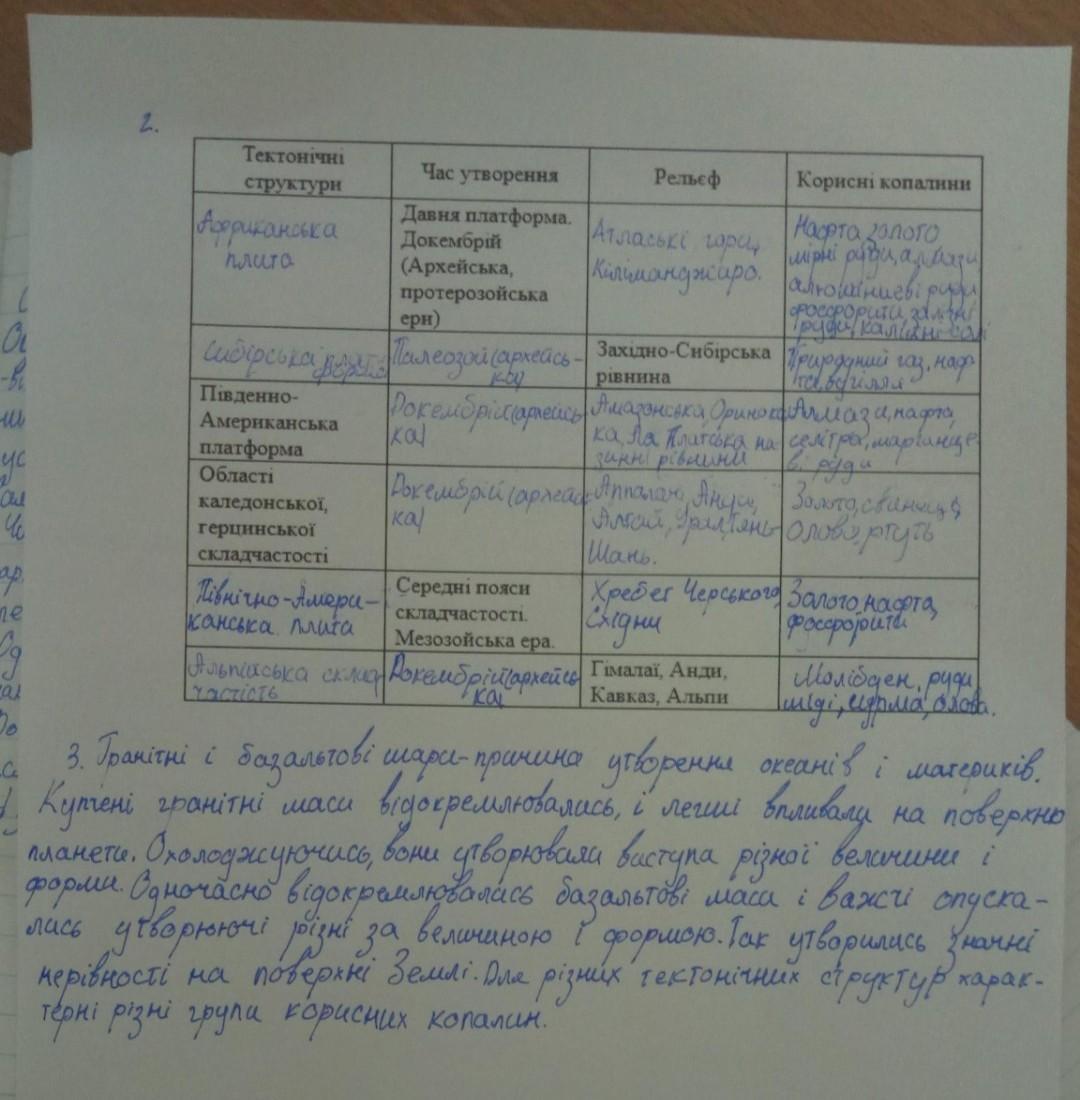 2.
Тектонічні
структури
Час утворення
Рельєф
Корисні копалини
Африканська
плита
Давня платформа.
Докембрій
(Архейська,
протерозойська
ери)
Атлаські гори,
Кіліманджаро.
Нафта золото
мірні руди, алмази
алюмінієві руди
фосфорити залізні
руди, калійні солі
Сибірська
Палеозой(архейсь-
ка)
Західно-Сибірська
рівнина
Природний газ, наф
та, вугілля
Південно-
Американська
платформа
Докембрій(архейсь
ка)
Амазонська, Оринокс
ка, Ла Платська ни
зинні рівнини
Алмази, нафта,
селітра, марганце
ві руди
Області
каледонської,
герцинської
складчастості
Докембрій(архейсь
ка)
Аппалачі, Анди,
Алтай, Урал, Тянь-
Шань.
Золото, свинець,
олово, ртуть
Північно-Амери-
канська плита
Середні пояси
складчастості.
Мезозойська ера.
Хребет Черського,
Східни
Золото, нафта,
фосфорити
Альпійська склад
частість
Докембрій(архейсь
ка)
Гімалаї, Анди,
Кавказ, Альпи
Молібден, руди
міді, цурма, олова.
3. Гранітні і базальтові шари-причина утворення океанів і материків.
Купчені гранітні маси відокремлювались, і легші впливали на поверхню
планети. Охолоджуючись, вони утворювали виступа різної величини і
форми. Одночасно відокремлювалась базальтові маси і важчі опуска-
лись утворюючі різні за величиною і формою. Так утворились значні
нерівності на поверхні Землі. Для різних тектонічних структур харак-
терні різні групи корисних копалин.